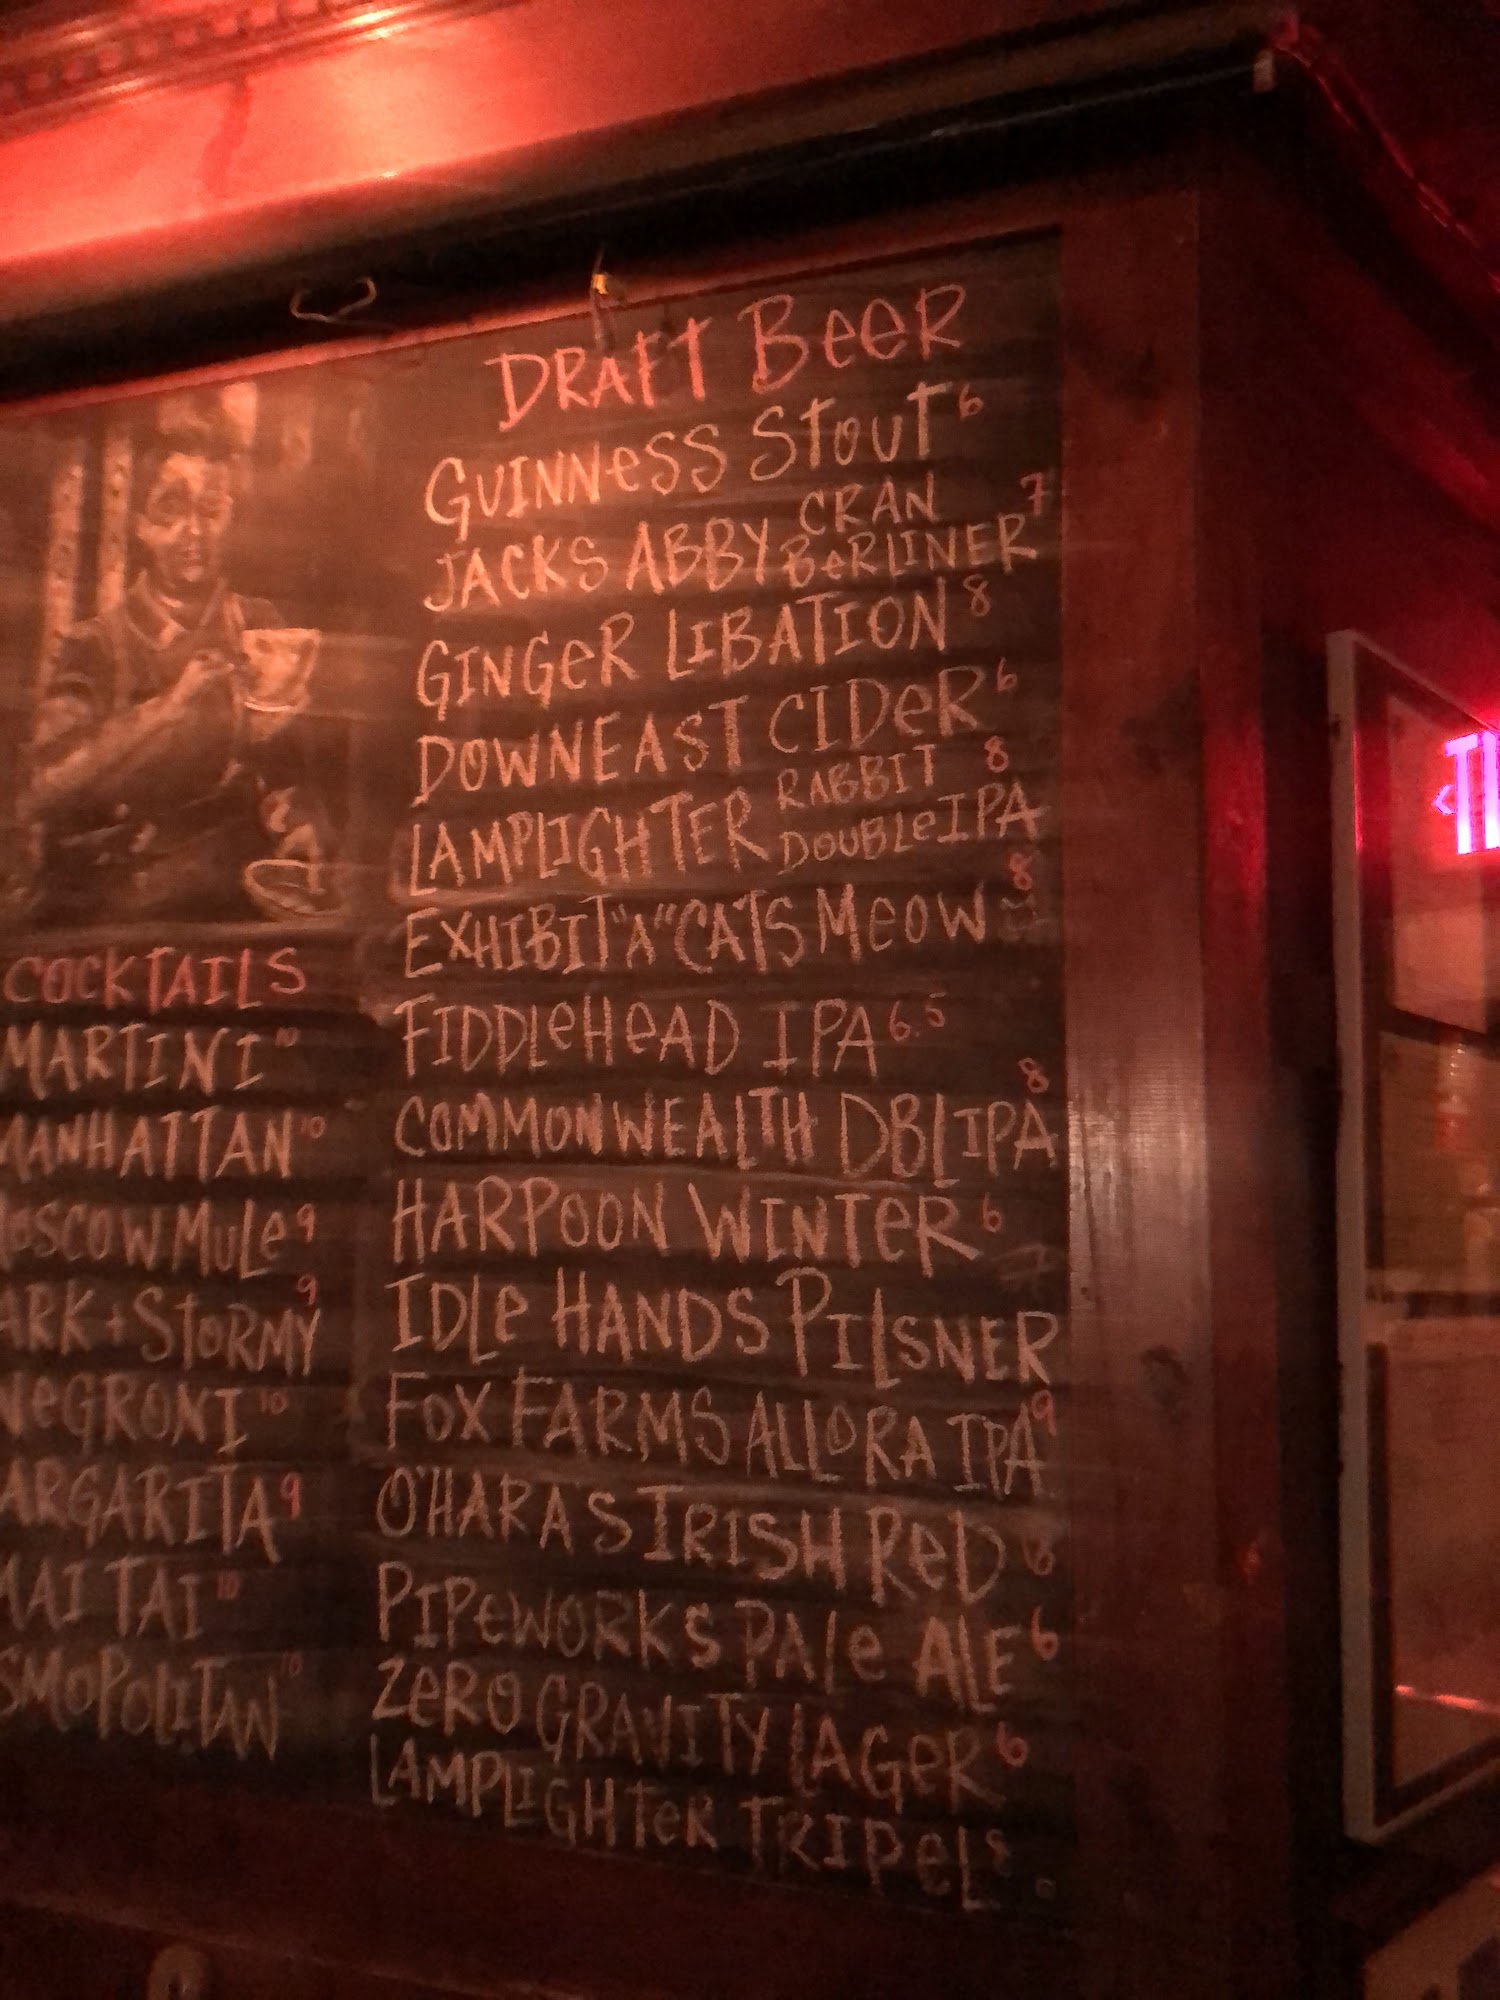 DRAFT BEER
GUINNESS STOUT 6
JACKS ABBY CRAN BERLINER 7
GINGER LIBATION 8
DOWNEAST CIDER 6
LAMPLIGHTER RABBIT DOUBLE IPA 8
EXHIBIT "A" CATS MEOW 8
FIDDLEHEAD IPA 6.5
COMMONWEALTH DBL IPA 8
HARPOON WINTER 6
IDLE HANDS PILSNER 7
FOX FARMS ALLORA IPA 9
O'HARAS IRISH RED
PIPEWORKS PALE ALE 6
ZERO GRAVITY LAGER 6
LAMPLIGHTER TRIPEL 8
COCKTAILS
MARTINI 10
MANHATTAN 10
MOSCOW MULE 9
ARK + STORMY 9
NEGRONI 10
ARGARITA 9
MAI TAI 10
SMOPOLITAN 10